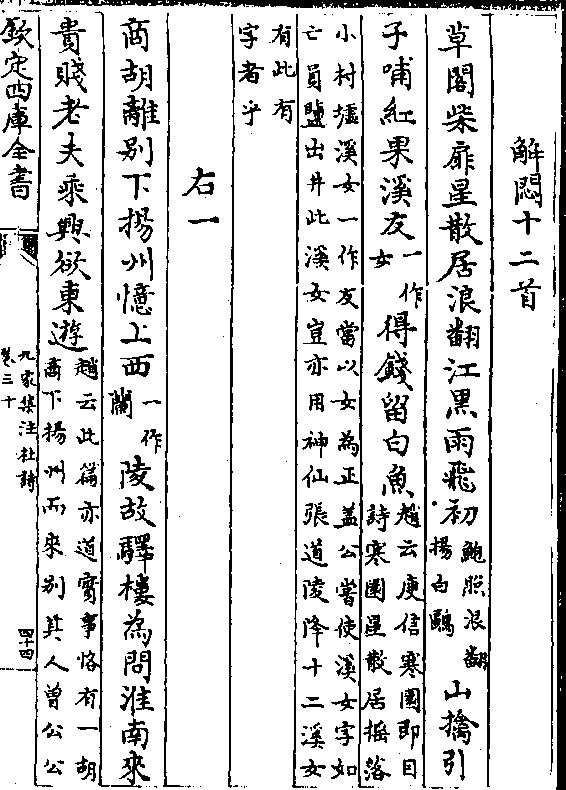 解悶十二首
草閣柴扉星散居浪翻江黑雨飛初鮑照浪翻揚白鷗山擒引
子哺紅果溪友一作女得錢留白魚趙云庾信寒園即目詩寒園星散居揺落
小村墟溪女一作友當以女為正盖公嘗使溪女字如亡員鹽出井此溪女豈亦用神仙張道陵降十二溪女
有此有字者乎
右一
商胡離别下揚州憶上西一作蘭陵故驛樓為問淮南米
貴賤老夫乘興欲東遊趙云此篇亦道實事恪有一胡商下揚州而來别其人曾公公
欽定四庫全書
九家集注杜詩
卷三十
四十四